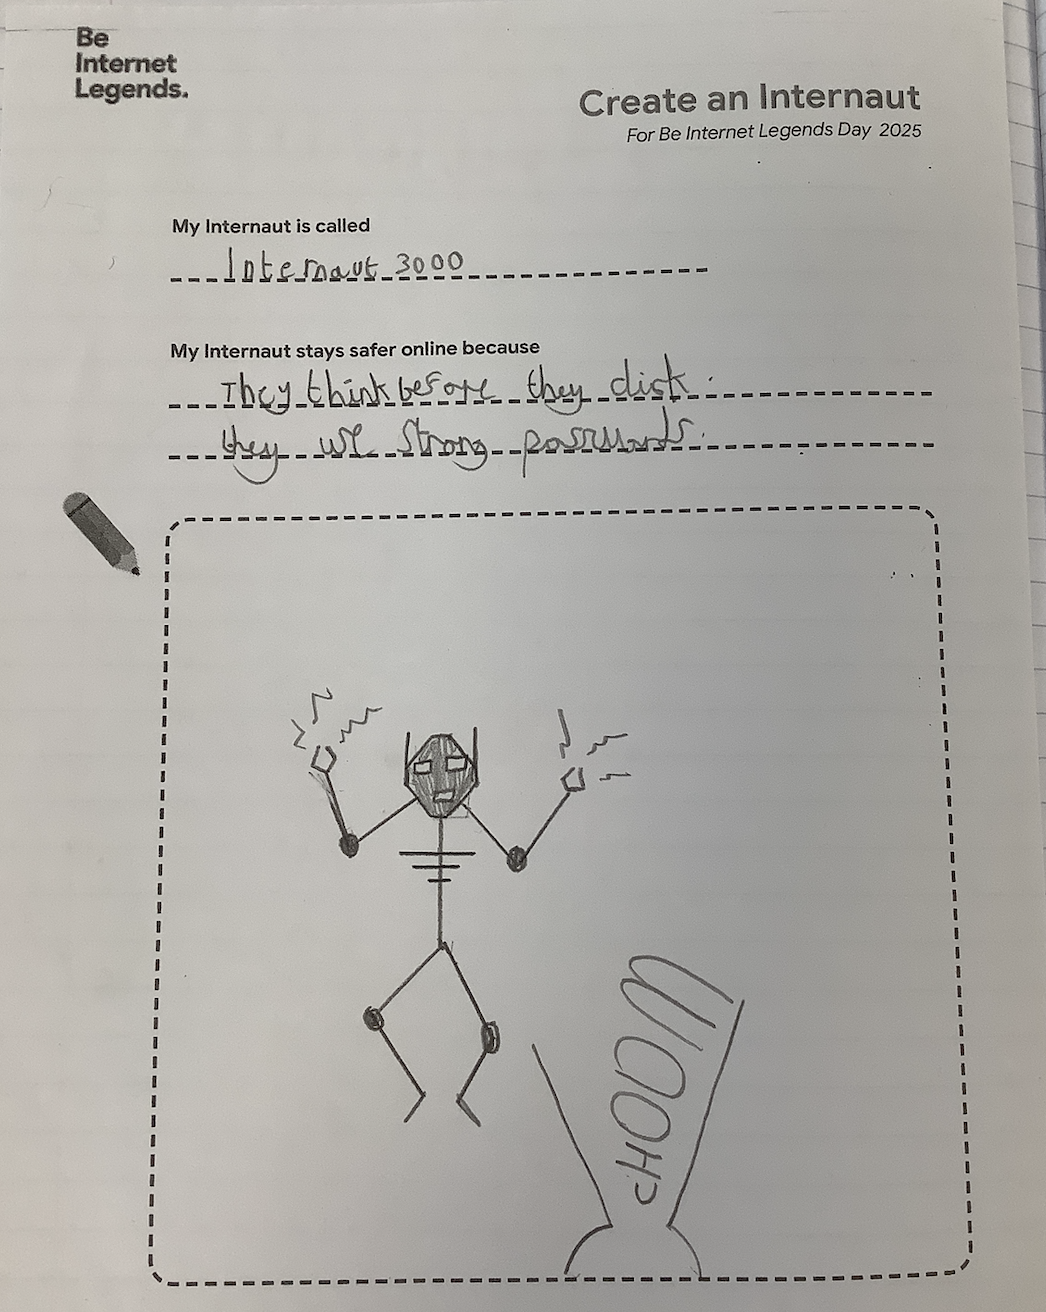 Be
Internet
Legends.
Create an Internaut
For Be Internet Legends Day 2025
My Internaut is called
Internaut 3000
My Internaut stays safer online because
They think before they click.
they use strong passwords.
WOOH